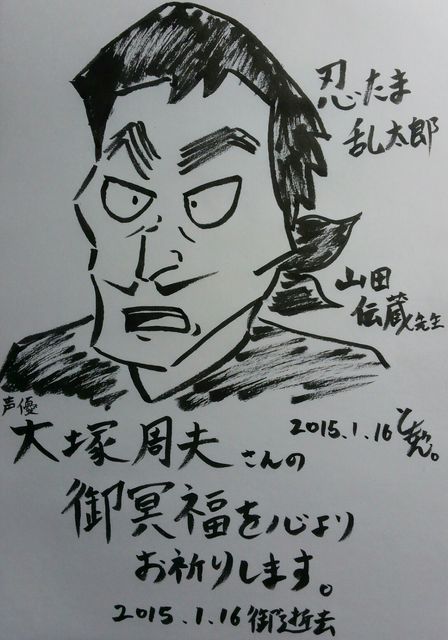 忍たま
乱太郎
山田
伝蔵先生
2015.1.16
声優
大塚周夫さんの
御冥福を心より
お祈りします。
2015.1.16 御逝去